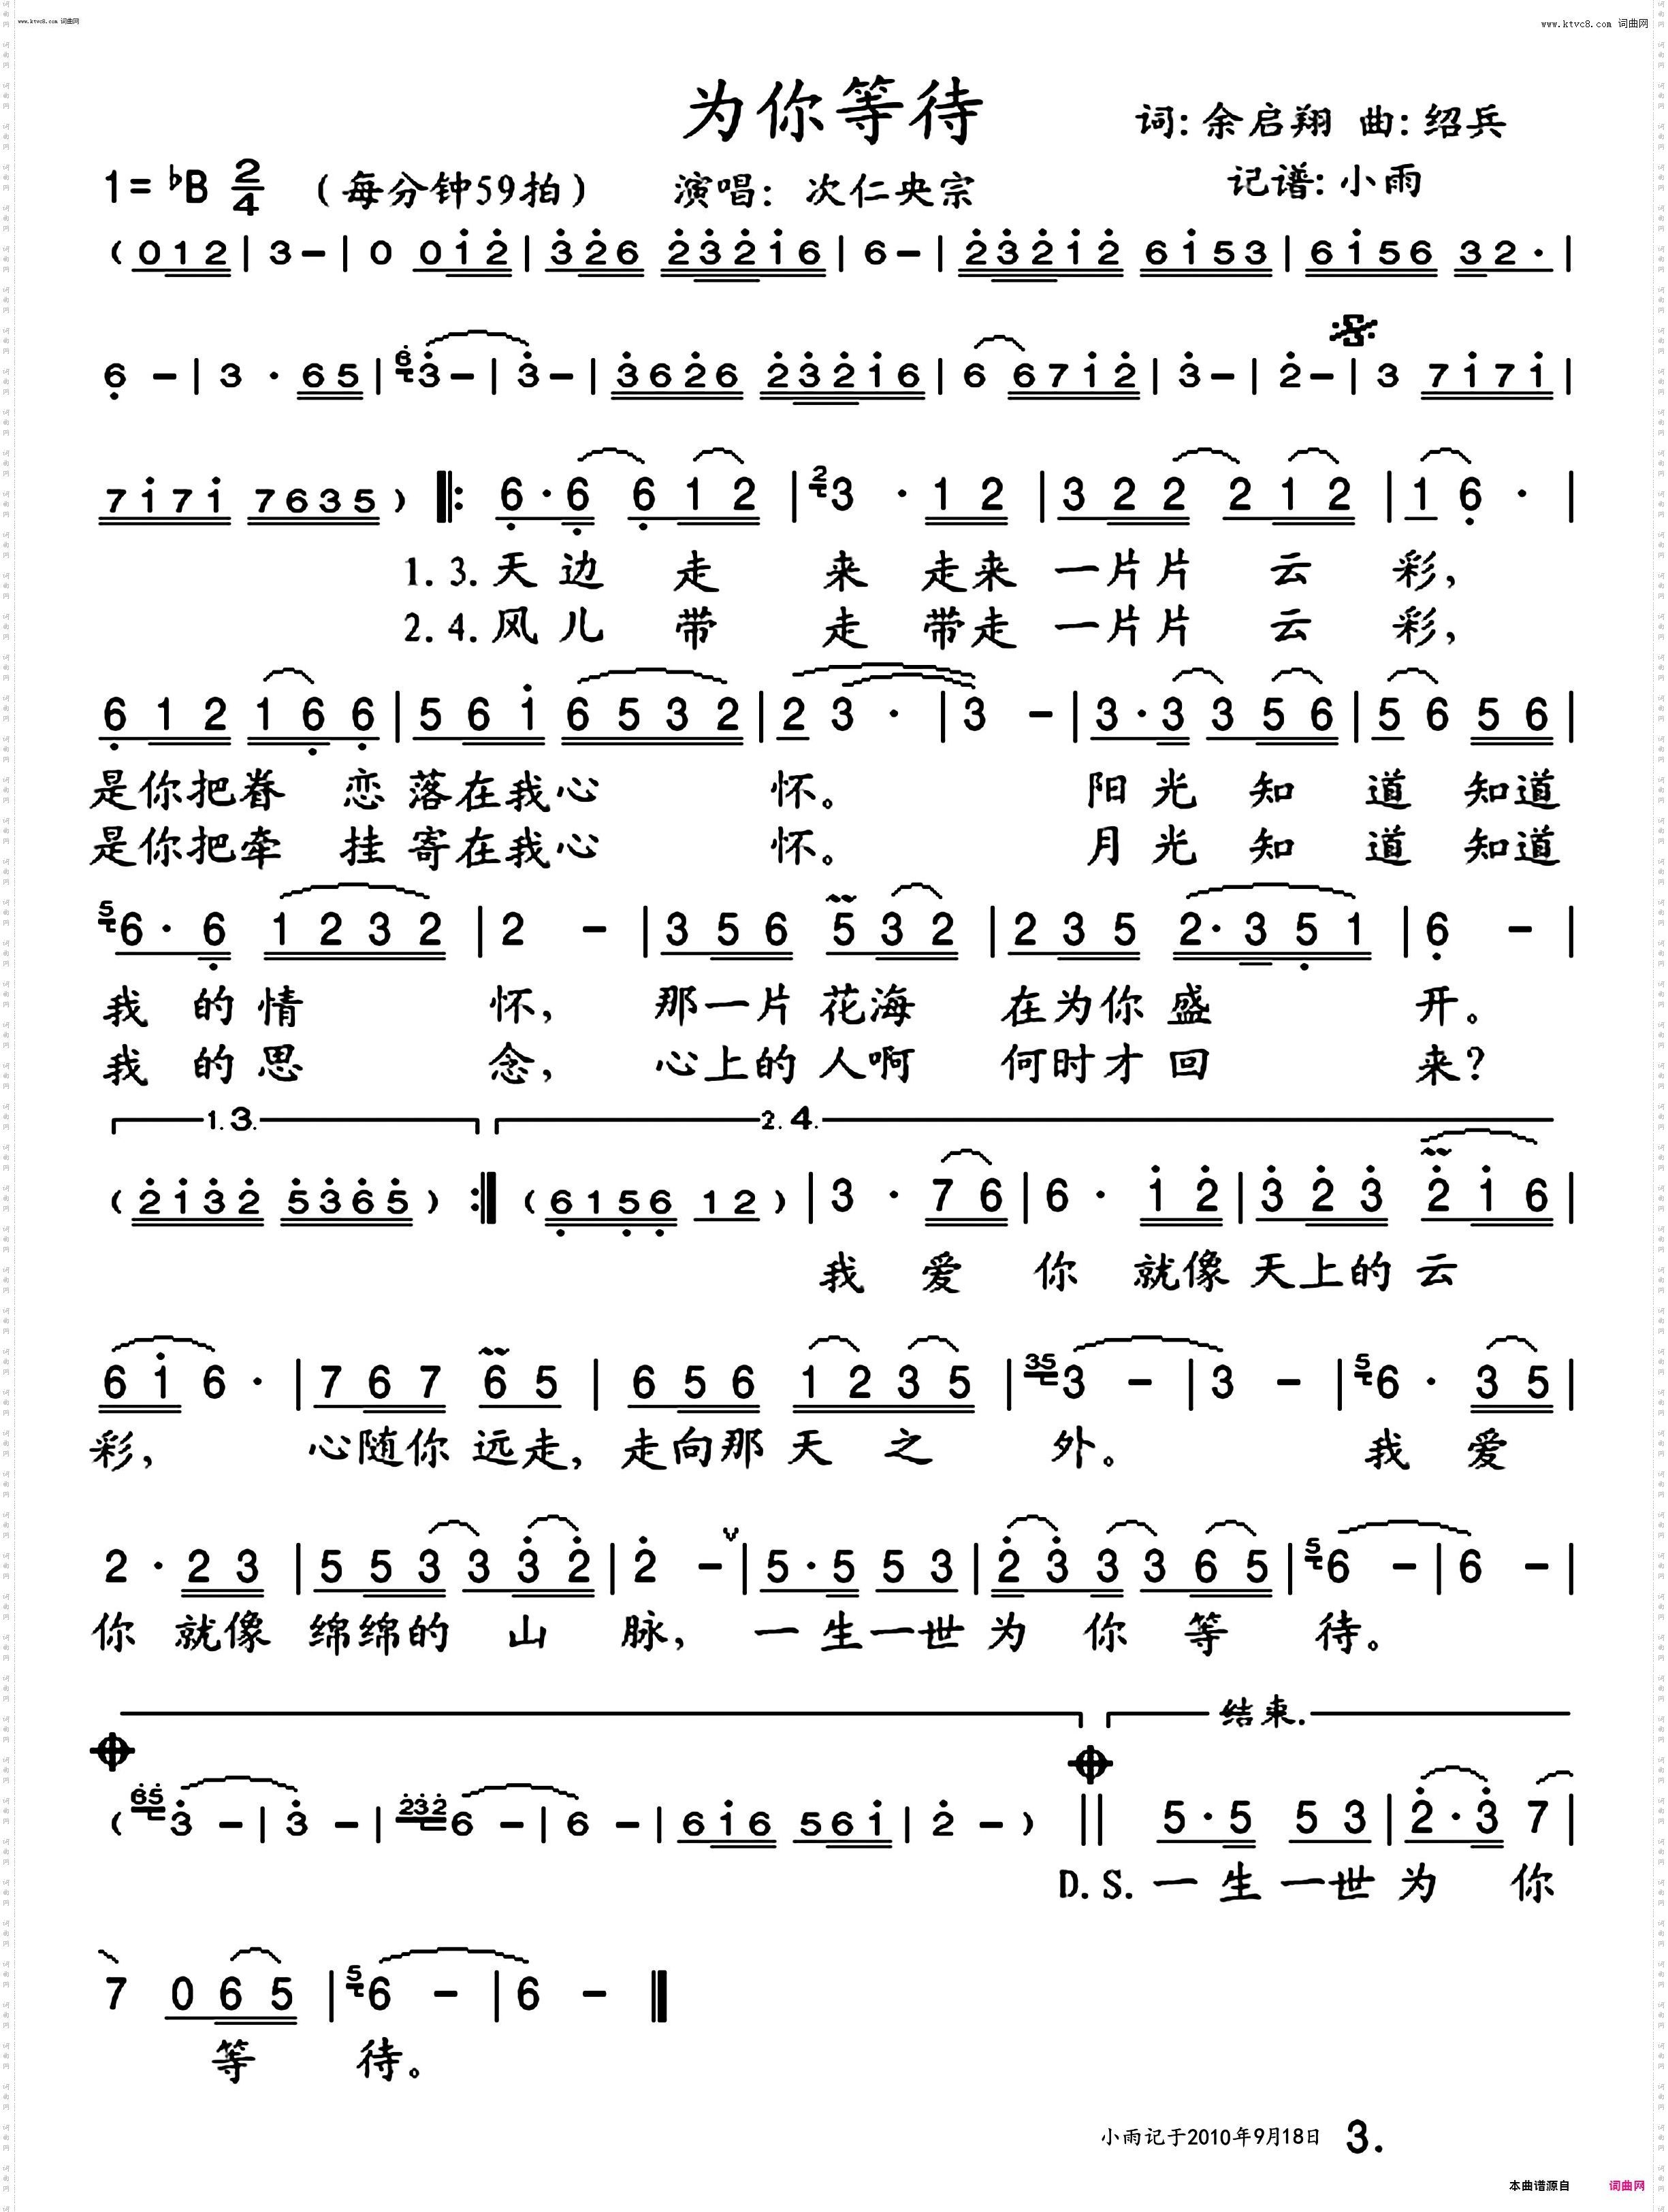 www.ktvc8.com 词曲网
www.ktvc8.com 词曲网
为你等待
词: 余启翔 曲: 绍兵
1= ♭B 2/4 (每分钟59拍) 演唱: 次仁央宗 记谱: 小雨
( 0 1 2 | 3 – | 0 0 1 2 | 3 2 6 2 3 2 1 6 | 6 – | 2 3 2 1 2 6 1 5 3 | 6 1 5 6 3 2 · |
6 – | 3 · 6 5 | 6 3 – | 3 – | 3 6 2 6 2 3 2 1 6 | 6 6 7 1 2 | 3 – | 2 – | 3 7 1 7 1 |
7 1 7 1 7 6 3 5 ) |: 6 · 6 6 1 2 | 2 3 · 1 2 | 3 2 2 2 1 2 | 1 6 · |
1. 3. 天 边 走 来 走来 一片片 云 彩,
2. 4. 风 儿 带 走 带走 一片片 云 彩,
6 1 2 1 6 6 | 5 6 1 6 5 3 2 | 2 3 · | 3 – | 3 · 3 3 5 6 | 5 6 5 6 |
是你把眷 恋 落在我心 怀。 阳 光 知 道 知道
是你把牵 挂 寄在我心 怀。 月 光 知 道 知道
5 6 · 6 1 2 3 2 | 2 – | 3 5 6 5 3 2 | 2 3 5 2 · 3 5 1 | 6 – |
我 的 情 怀, 那一片 花海 在为你 盛 开。
我 的 思 念, 心上的 人啊 何时才 回 来?
1. 3. 2. 4.
( 2 1 3 2 5 3 6 5 ) :| ( 6 1 5 6 1 2 ) | 3 · 7 6 | 6 · 1 2 | 3 2 3 2 1 6 |
我 爱 你 就像 天上的 云
6 1 6 · | 7 6 7 6 5 | 6 5 6 1 2 3 5 | 35 3 – | 3 – | 5 6 · 3 5 |
彩, 心随你 远走, 走向那 天 之 外。 我 爱
2 · 2 3 | 5 5 3 3 3 2 | 2 – V | 5 · 5 5 3 | 2 3 3 3 6 5 | 5 6 – | 6 – |
你 就像 绵绵的 山 脉, 一 生一世 为 你 等 待。
结束.
( 65 3 – | 3 – | 232 6 – | 6 – | 6 1 6 5 6 1 | 2 – ) || 5 · 5 5 3 | 2 · 3 7 |
D.S. 一 生 一世 为 你
7 0 6 5 | 5 6 – | 6 – ||
等 待。
小雨记于2010年9月18日 3.
本曲谱源自 词曲网